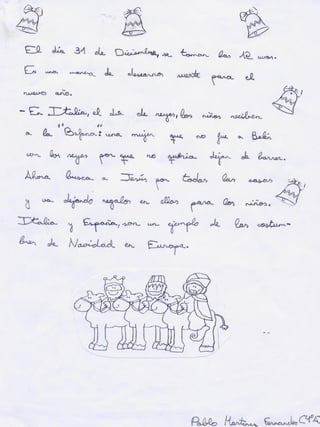 El día 31 de Diciembre, se toman las 12 uvas.
Es una manera de desearnos suerte para el
nuevo año.
- En Italia, el día de reyes, los niños reciben
a la "Befana": una mujer que no fue a Belén
con los reyes por que no quería dejar de barrer.
Ahora busca a Jesús por todas las casas
y va dejando regalos en ellas para los niños.
Italia y España, son un ejemplo de las costum-
bres de Navidad en Europa.
Pablo Martínez Fernández (4ºA)